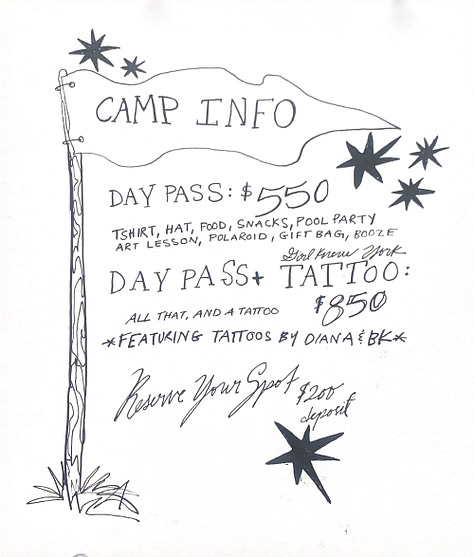 CAMP INFO
DAY PASS: $550
TSHIRT, HAT, FOOD, SNACKS, POOL PARTY
ART LESSON, POLAROID, GIFT BAG, BOOZE
Girl Knew York
DAY PASS + TATTOO:
$850
ALL THAT, AND A TATTOO
*FEATURING TATTOOS BY DIANA & BK*
Reserve Your Spot $200
deposit